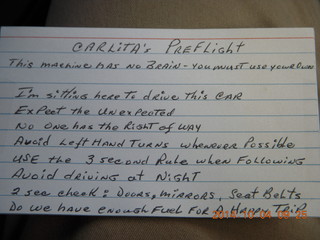 CARLITA's PREFLIGHT
THIS MACHINE HAS NO BRAIN - YOU MUST USE YOUR OWN
I'm sitting here to drive this CAR
EXPECT the UNEXPECTED
NO ONE HAS the RIGHT OF WAY
AVOID LEFT HAND TURNS WHENEVER POSSIBLE
USE the 3 second RULE WHEN FOLLOWING
AVOID DRIVING AT NIGHT
2 SEC CHECK: DOORS, MIRRORS, SEAT BELTS
DO WE HAVE ENOUGH FUEL FOR A HAPPY TRIP